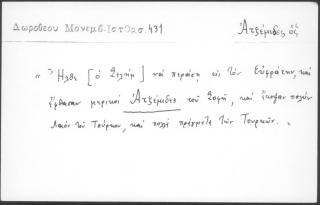 Δωροθεου Μονεμβ. Ιστ σ. 431
Ἀτζέμιδες, ὁς
" Ἦλθε [ὁ Σελὴμ] καὶ περάση εἰς τὸν Εὐφράτην, καὶ
ἔφθασαν μερικοὶ Ἀτζέμιδες τοῦ Σοφῆ, καὶ ἔκοψαν πολὺν
λαὸν τοῦ Τούρκου, καὶ πολλὰ πράγματα τῶν Τουρκῶν. "